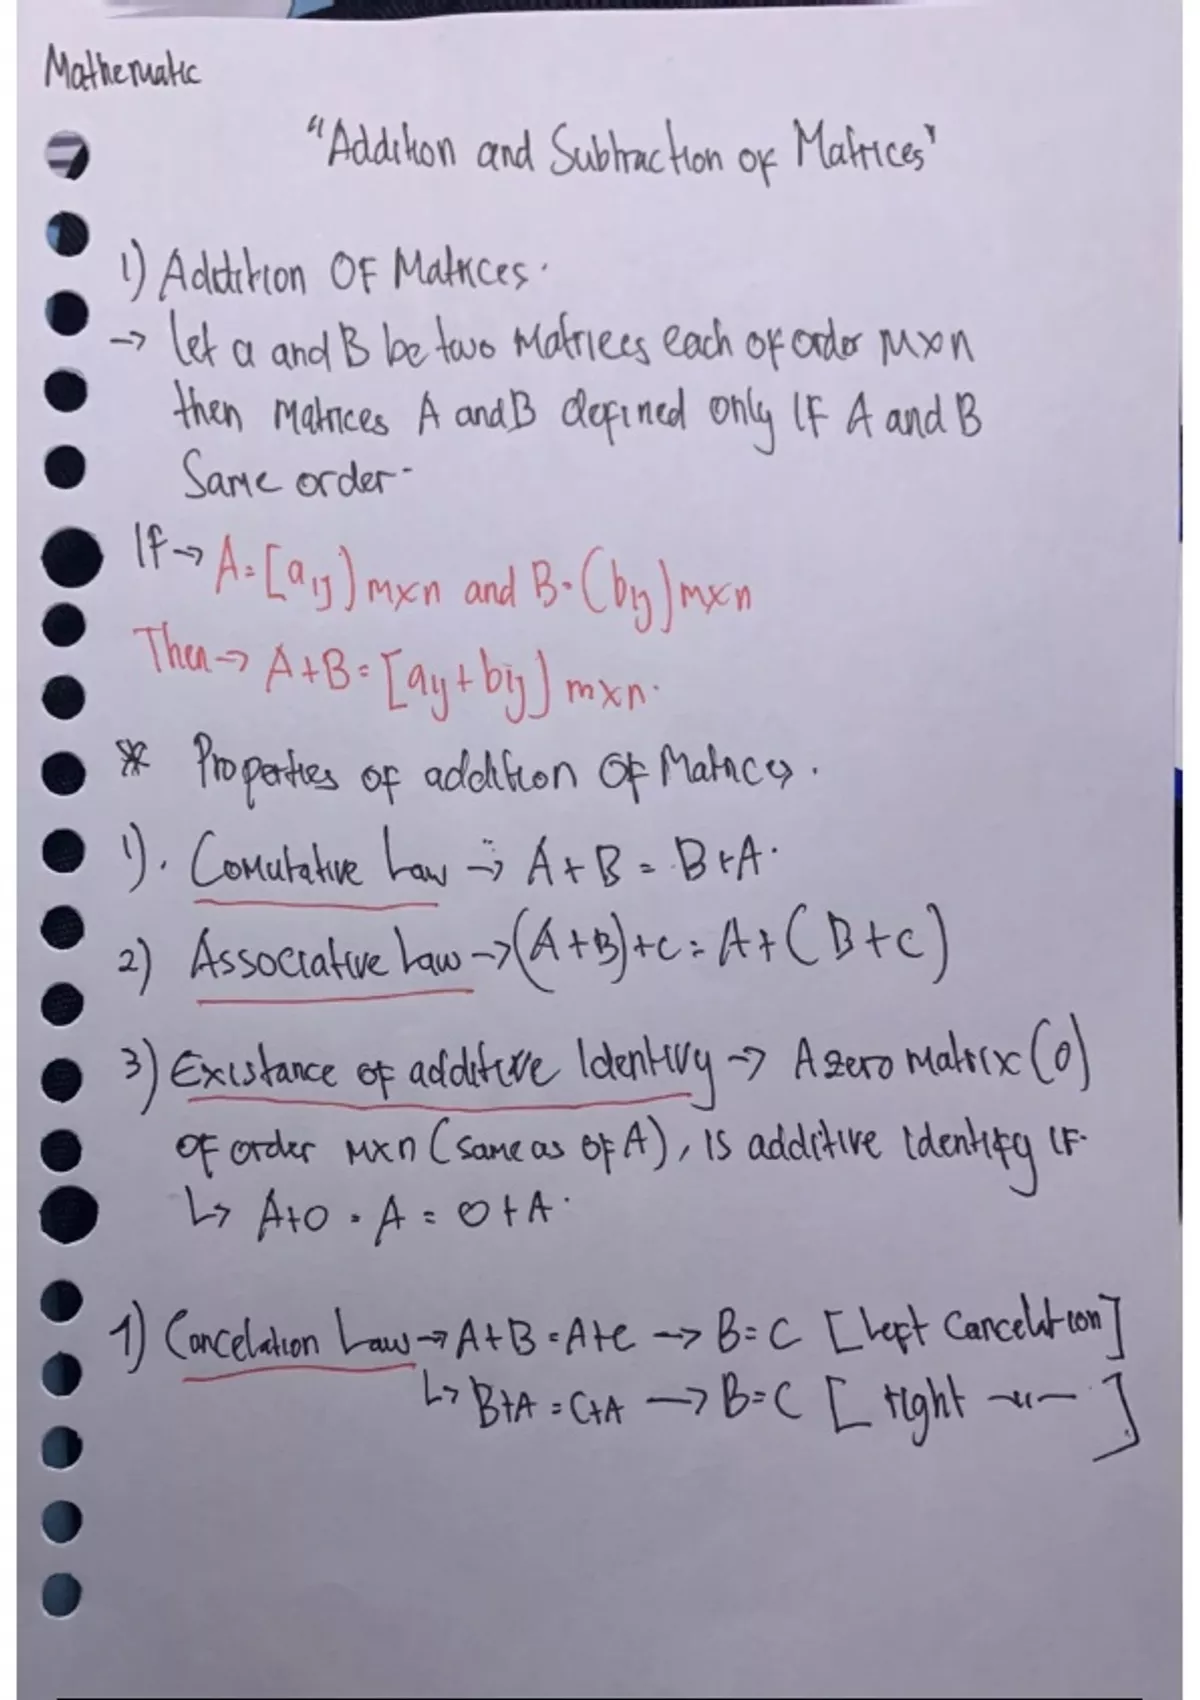 Mathematic
"Addition and Subtraction of Matrices"
1) Addition OF Matrices.
→ let a and B be two Matriees each of order mxn
then matrices A and B defined only IF A and B
Same order.
If → A = [aij) mxn and B = (bij) mxn
Then → A+B = [aij + bij] mxn.
* Properties of addition of Matrices.
1). Comutative Law → A + B = B + A.
2) Associative Law → (A+B)+C = A+(B+C)
3) Existance of additive Identity → A zero matrix (0)
of order mxn (same as of A), is additive identify IF.
↳ A+0 = A = 0+A.
1) Cancelation Law → A+B = A+C → B=C [Left Cancelation]
↳ B+A = C+A → B=C [right -"-]